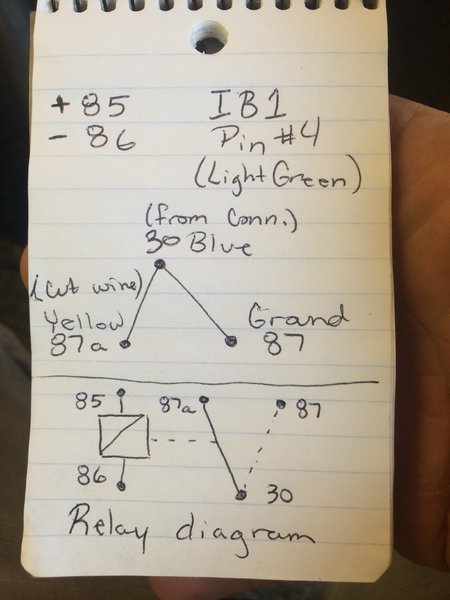 + 85 IB1
- 86 Pin #4
(Light Green)
(from Conn.)
30 Blue
(cut wire)
Yellow Grand
87a 87
85 87a 87
86 30
Relay diagram